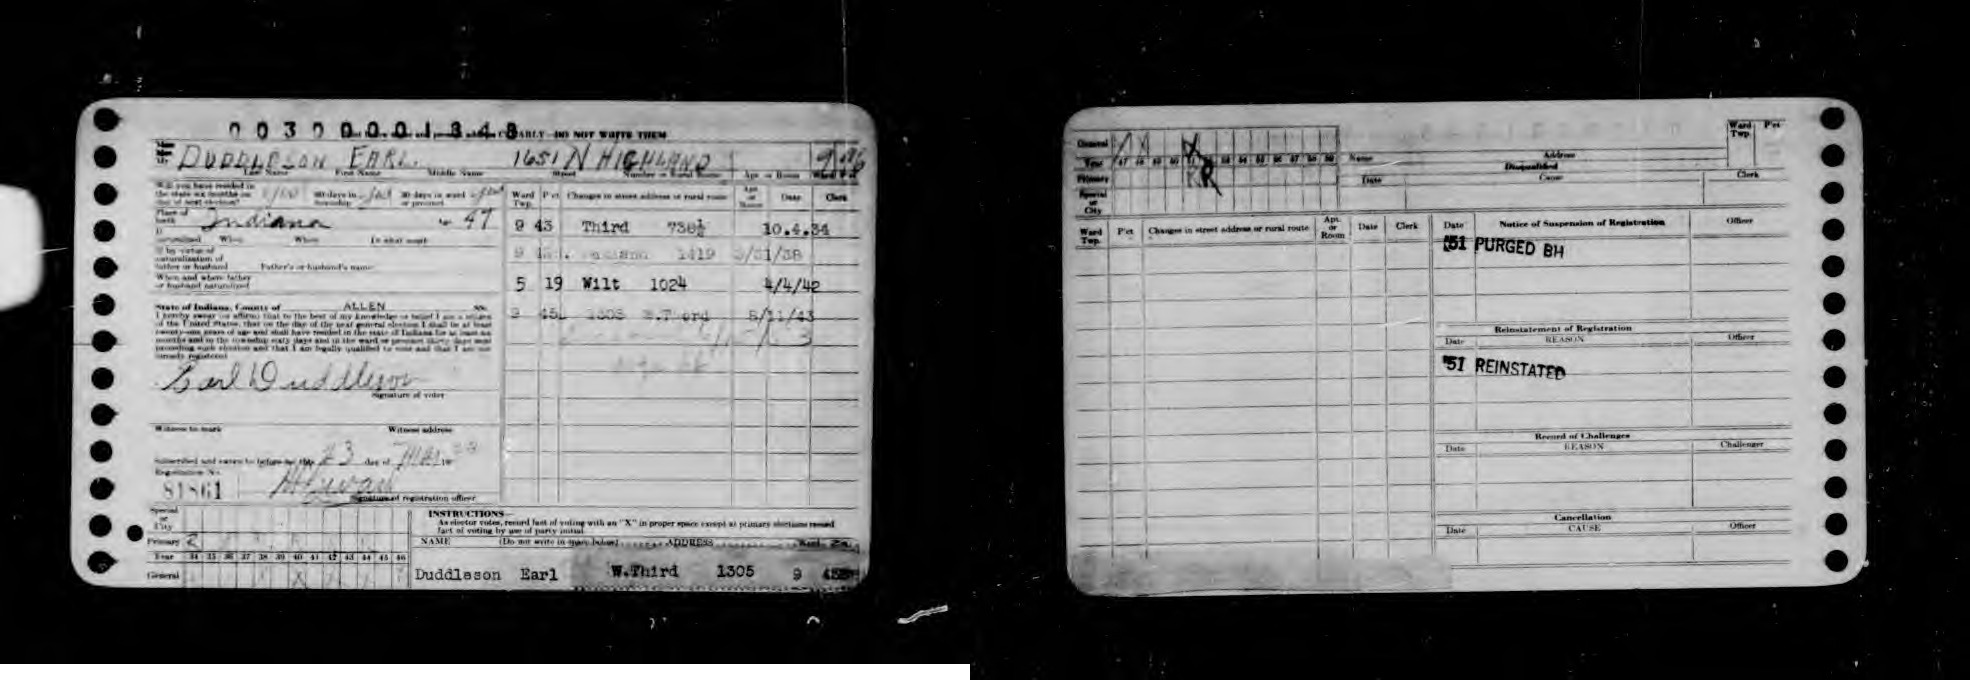 00300001848
CLEARLY—DO NOT WRITE THEM
DUDDLESON EARL 1651 N HIGHLAND
Last Name First Name Middle Name Street Number or Rural Route Apt. or Room Ward P'ct
Will you have resided in the state six months on day of next election? 60 days in township 30 days in ward or precinct
Ward Twp. P'ct Changes in street address or rural route Apt. or Room Date Clerk
Place of birth Indiana 47
If naturalized When Where In what court
If by virtue of naturalization of father or husband Father's or husband's name
When and where father or husband naturalized
9 43 Third 738½ 10.4.34
1419
5 19 Wilt 1024 4/4/42
9 45 1305 8/11/43
State of Indiana, County of ALLEN SS:
I hereby swear (or affirm) that to the best of my knowledge or belief I am a citizen
of the United States, that on the day of the next general election I shall be at least
twenty-one years of age and shall have resided in the state of Indiana for at least six
months and in the township sixty days and in the ward or precinct thirty days next
preceding such election and that I am legally qualified to vote and that I am not
already registered
Earl Duddleson
Signature of voter
Witness to mark Witness address
Subscribed and sworn to before me this 23 day of 19
Registration No.
81861
Signature of registration officer
INSTRUCTIONS—
As elector votes, record fact of voting with an "X" in proper space except at primary elections record
fact of voting by use of party initial.
NAME (Do not write in space below) ADDRESS
Special or City
Primary R
Year 34 35 36 37 38 39 40 41 42 43 44 45 46
General X
Duddleson Earl W.Third 1305 9
General X X X
Year 47 48 49 50 51 52 53 54 55 56 57 58 59
Primary R
Special or City
Name Address
Disqualified
Date Cause Clerk
Ward Twp. P'ct
Ward Twp. P'ct Changes in street address or rural route Apt. or Room Date Clerk
Date Notice of Suspension of Registration Officer
'51 PURGED BH
Reinstatement of Registration
Date REASON Officer
'51 REINSTATED
Record of Challenges
Date REASON Challenger
Cancellation
Date CAUSE Officer